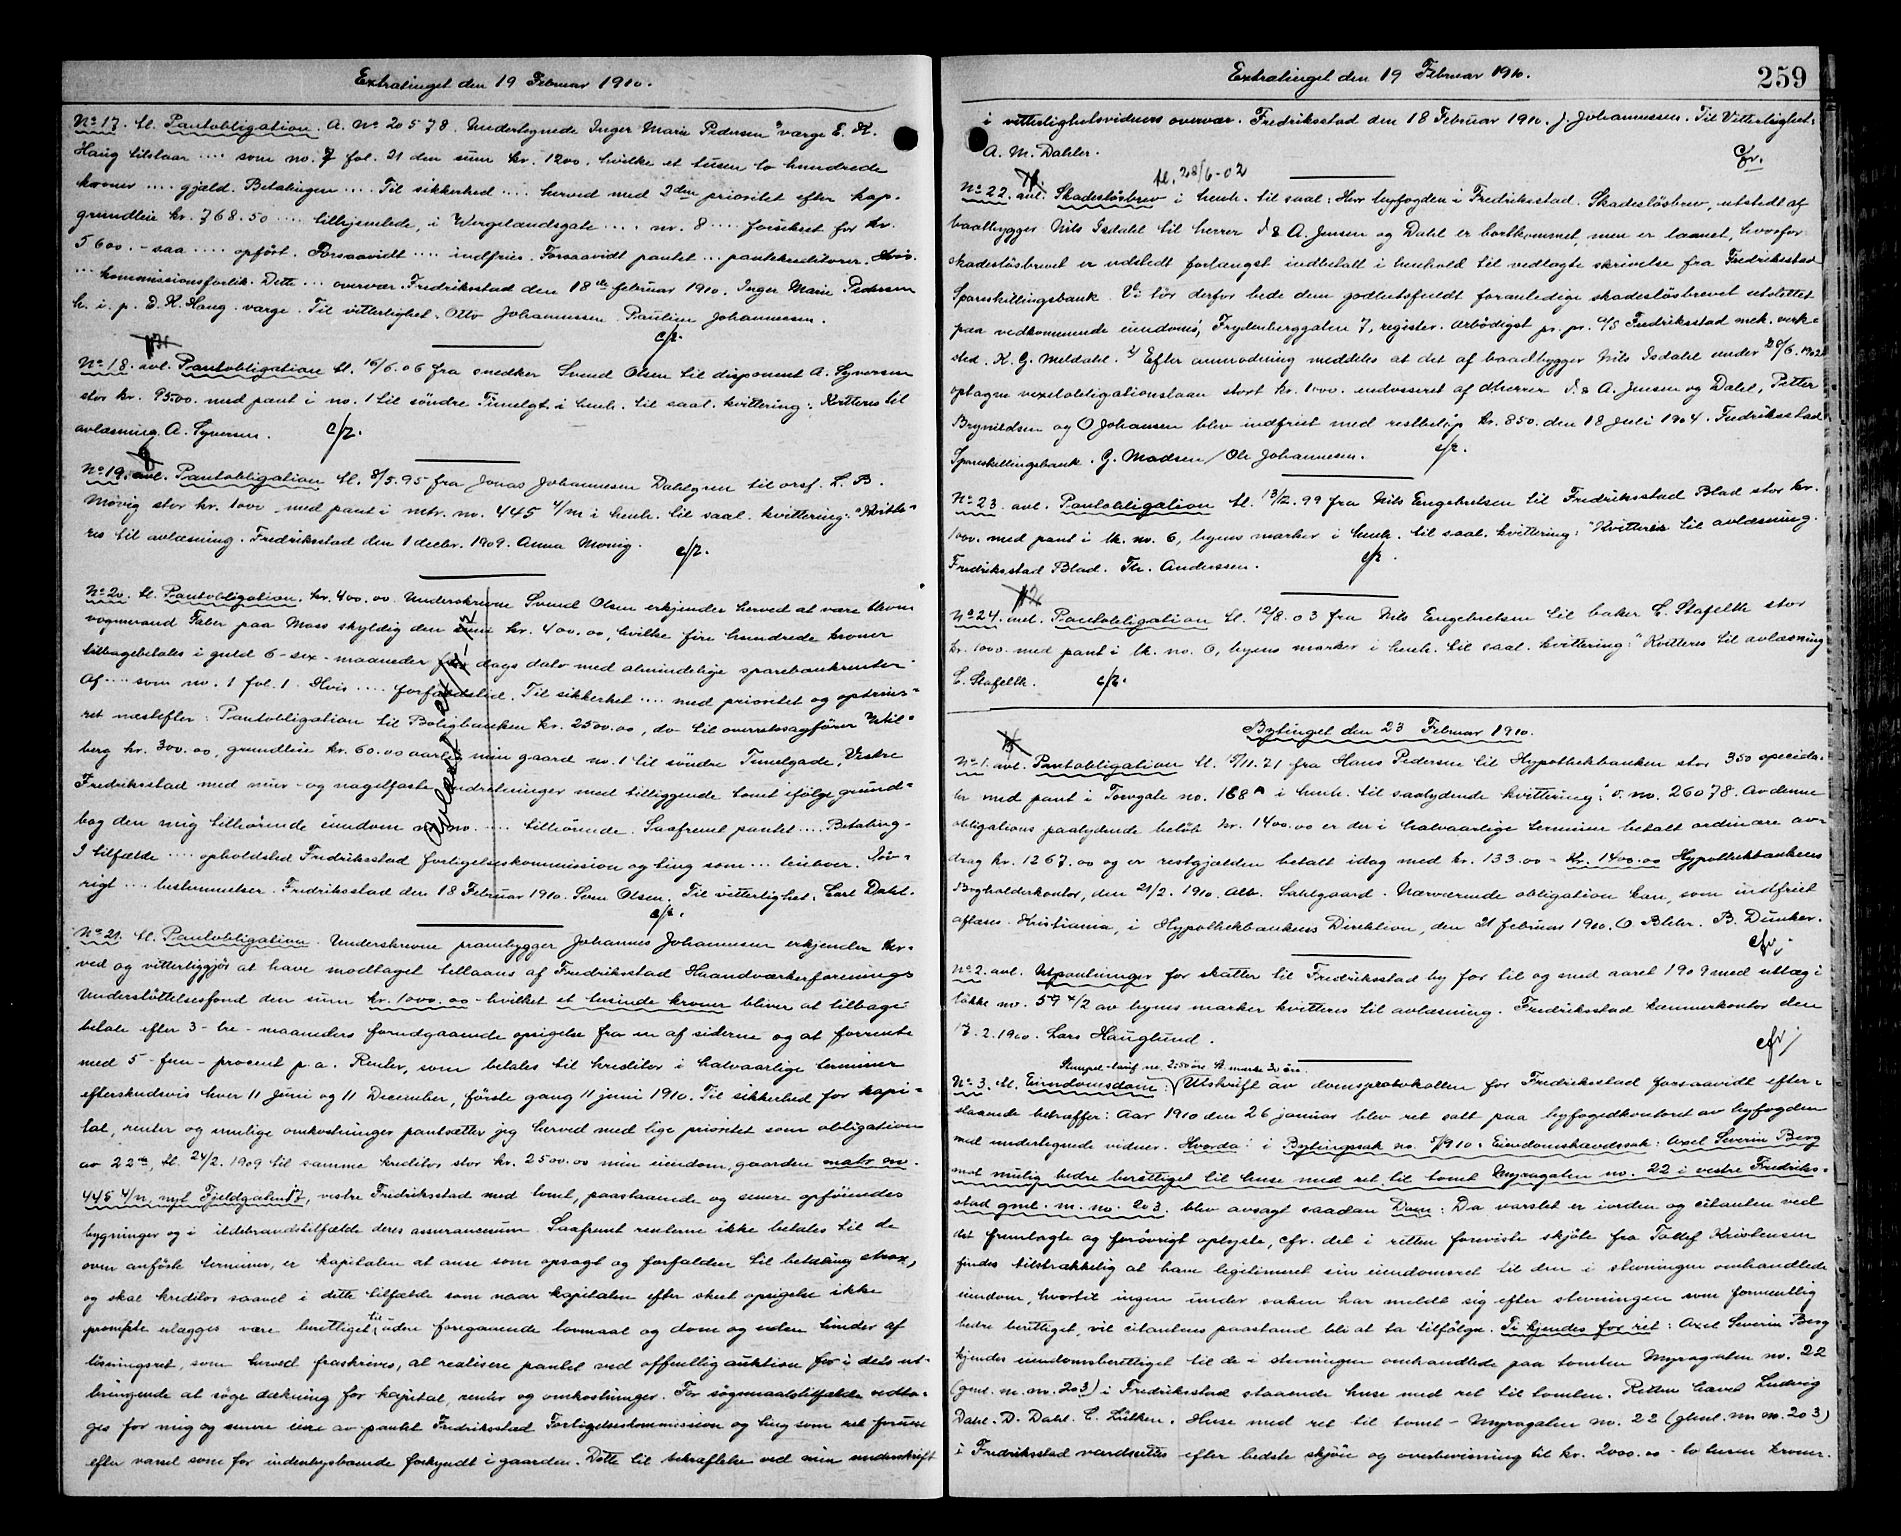 Extratinget den 19 Februar 1910.
No 17. tl. Pantobligation. A. No 20578. Undertegnede Inger Marie Pedersen varge E. H.
Haug tilstaar .... som no. 7 fol. 21 den sum kr. 1200. hvilke et tusen to hundrede
kroner .... gjæld. Betalingen .... Til sikkerhed .... herved med 2den prioritet efter kap.
grundleie kr. 768.50 .... tilhjemlede, i Wergelandsgate .... nr. 8 .... forsikret for kr.
5600.- saa .... opført. Forsaavidt .... indfries. Forsaavidt pantet ... pantekreditorer. Hvis
... kommissionsforlik. Dette ... overvær. Fredriksstad den 18de februar 1910. Inger Marie Pedersen
h. i. p. E. H. Haug. varge. Til vitterlighet. Otto Johannessen Pauline Johannessen.
cfr.
No 18. avl. Pantobligation tl. 16/6.06 fra snedker Svend Olsen til disponent A. Syversen
stor kr. 9500. med pant i no. 1 til søndre Timelgt. i henh. til saal. kvittering: Kvitteres til
avlæsning. A. Syversen. cfr.
No 19. avl. Pantobligation tl. 8/5.95 fra Jonas Johannesen Dahlgren til orsf. L. B.
Møvig stor kr. 1000 med pant i mtr. no. 445 4/m i henh. til saal. kvittering: "Kvitte"
res til avlæsning. Fredriksstad den 1 decbr. 1909. Anna Movig. cfr.
No 20. tl. Pantobligation. kr. 400.00. Underskrevne Svend Olsen erkjender herved at være
vognmand Faber paa Moss skyldig den sum kr. 400.00, hvilke fire hundrede kroner
tilbagebetales i guld 6-sex-maaneder fra dags dato med almindelige sparebankrenter.
Af .... som no. 1 fol. 1. Hvis .... forfaldstid. Til sikkerhet .... med prioritet og optrins-
ret næstefter: Pantobligation til Boligbanken kr. 2500.00, do til overretssagfører Wiil-
berg kr. 300.00, grundleie kr. 60.00 aarlig min gaard no. 1 til søndre Timelgade, Vestre
Fredriksstad med mur- og nagelfaste indretninger med tilliggende tomt ifølge grund-
bog den mig tilhørende eiendom og no. .... tilhørende. Saafremt pantet .... Betaling.
I tilfælde .... opholdsted Fredriksstad forligelseskommission og ting som ... beboer. Iøv-
rigt .... bestemmelser. Fredriksstad den 18 Februar 1910. Sven Olsen. Til vitterlighet. Carl Dahl.
cfr.
No 21. tl. Pantobligation. Underskrevne prambygger Johannes Johannesen erkjender her-
ved og vitterliggjør at have modtaget tillaans af Fredriksstad Haandværkerforenings
Understøttelsesfond den sum kr. 1000.00 - hvilket et tusinde kroner bliver at tilbage-
betale efter 3-tre-maaneders forudgaaende opsigelse fra en af siderne og at forrente
med 5-fem-procent p.a. Renter, som betales til kreditor i halvaarlige terminer
efterskudsvis hver 11 Juni og 11 December, første gang 11 juni 1910. Til sikkerhed for kapi-
tal, renter og mulige omkostninger pantsætter jeg herved med lige prioritet som obligation
av 22de, tl. 24/2. 1909 til samme kreditor stor kr. 2500.00 min eiendom, gaarden matr. nr.
445 4/n, nyt Fjeldgaten 17, vestre Fredriksstad med tomt, paastaaende og senere opføiendes
bygninger og i ildebrandstilfælde deres assurancesum. Saafremt renterne ikke betales til de
oven anførte terminer, er kapitalen at anse som opsagt og forfalden til betaling strax,
og skal kreditor saavel i dette tilfælde som naar kapitalen efter skeet opsigelse ikke
prompte erlægges være berettiget til uden foregaaende lovmaal og dom og uden hinder af
løsningsret, som herved fraskrives, at realisere pantet ved offentlig auktion for i dets ut-
bringende at søge dækning for kapital, renter og omkostninger. For søgmaalstilfælde vedta-
ges for mig og senere eiere av pantet Fredriksstad Forligelseskommission og ting som ret forum
efter varsel som for indenbysboende forkyndt i gaarden. Dette til bekræftelse ved min underskrift
Extratinget den 19 Februar 1910.
259
i vitterlighetsvidners overvær. Fredriksstad den 18 Februar 1910. J. Johannessen. Til Vitterlighet:
A. M. Dahler. cfr.
tl. 28/6-02
No 22. avl. Skadesløsbrev i henh. til saal: Herr byfogden i Fredriksstad. Skadesløsbrev, utstedt af
baatbygger Nils Isdahl til herrer J. & A. Jensen og Dahl er bortkommet, men er laanet, hvorfor
skadesløsbrevet er udstedt forlængst indbetalt i henhold til vedlagte skrivelse fra Fredriksstad
Spareskillingsbank. Vi tør derfor bede dem godhetsfuldt foranledige skadesløsbrevet utslettet
paa vedkommende eiendoms, Frydenberggaten 7, register. Ærbødigst pr. pr. A/S Fredriksstad mek. verk-
sted. K. G. Meldahl. 2/ Efter anmodning meddeles at det af baadbygger Nils Isdahl under 28/6.1902
optagne vexelobligationslaan stort kr. 1000. endosseret af dherrer J. & A. Jensen og Dahl, Petter
Brynildsen og O Johansen blev indfriet med restbeløp kr. 850. den 18 Juli 1904. Fredriksstad
Spareskillingsbank. G. Madsen / Ole Johannesen. cfr.
No 23. avl. Pantobligation tl. 13/12.99 fra Nils Engebretsen til Fredriksstad Blad stor kr.
1000. med pant i lk. no. 6, byens marker i henh. til saal. kvittering: "Kvitteres til avlæsning.
Fredriksstad Blad. Th. Anderssen. cfr.
No 24. avl. Pantobligation tl. 12/8.03 fra Nils Engebretsen til baker C. Stafeth stor
kr. 1000. med pant i lk. no. 6, byens marker i henh. til saal. kvittering: "Kvitteres til avlæsning
C. Stafeth. cfr.
Bytinget den 23 Februar 1910.
No 1. avl. Pantobligation tl. 15/11.71 fra Hans Pedersen til Hypothekbanken stor 350 specida-
ler med pant i Torvgate no. 168 A i henh. til saalydende kvittering: "o. no. 26078. Av denne
obligations paalydende beløb kr. 1400.00 er der i halvaarlige terminer betalt ordinære av-
drag kr. 1267.00 og er restgjælden betalt idag med kr. 133.00 - Kr. 1400.00 Hypothekbankens
Bogholderkontor, den 21/2. 1910. Alb. Sahlgaard. Nærværende obligation kan, som indfriet
aflæses. Kristiania, i Hypothekbankens Direktion, den 21 februar 1910. O Blehr. B. Dunker.
cfr.
No 2. avl. Utpantninger for skatter til Fredriksstad by for til og med aaret 1909 med utlæg i
løkke no. 59 4/2 av byens marker kvitteres til avlæsning. Fredriksstad kæmnerkontor den
17.2.1910. Lars Hauglund. cfr.
Stempel-tarif nr. 2:50 øre St. merke 30 øre.
No 3. tl. Eiendomsdom: Utskrift av domsprotokollen for Fredriksstad forsaavidt efter-
staaende betræffer: Aar 1910 den 26 januar blev ret satt paa byfogedkontoret av byfogden
med undertegnede vidner. Hvorda: i Bytingssak no. 5/1910: Eiendomshævdssak: Axel Severin Berg
mot mulig bedre berettiget til huse med ret til tomt Myragaten no. 22 i vestre Fredriks-
stad gml. m. no. 203. blev avsagt saadan Dom: Da varslet er iorden og citanten ved
det fremlagte og forøvrigt oplyste, cfr. det i retten foreviste skjøte fra Tallef Kristensen
findes tilstrækkelig at have legitimeret sin eiendomsret til den i stevningen omhandlede
eiendom, hvortil ingen under saken har meldt sig efter stevningen som formentlig
bedre berettiget, vil citantens paastand bli at ta tilfølge. Ti kjendes for ret: Axel Severin Berg
kjendes eiendomsberettiget til de i stevningen omhandlede paa tomten Myragaten no. 22
(gml. m. no. 203) i Fredriksstad staaende huse med ret til tomten. Retten hævet Ludvig
Dahl. D. Dahl. C. Lütken. Huse med ret til tomt - Myragaten no. 22 (glml. m. no. 203)
i Fredriksstad værdsættes efter bedste skjøn og overbevisning til kr. 2000.00 - to tusen kroner.